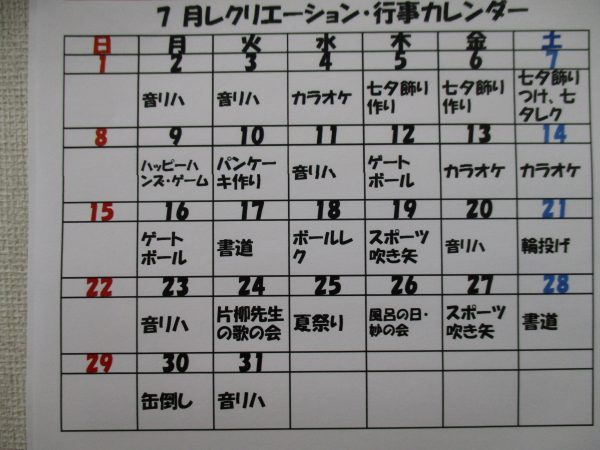 7 月レクリエーション・行事カレンダー
日 月 火 水 木 金 土
1 2 3 4 5 6 7
音リハ 音リハ カラオケ 七夕飾り 七夕飾り 七夕飾り
作り 作り つけ、七
夕レク
8 9 10 11 12 13 14
ハッピーハ パンケー 音リハ ゲート カラオケ カラオケ
ンズ・ゲーム キ作り ボール
15 16 17 18 19 20 21
ゲート 書道 ボールレ スポーツ 音リハ 輪投げ
ボール ク 吹き矢
22 23 24 25 26 27 28
音リハ 片柳先生 夏祭り 風呂の日・ スポーツ 書道
の歌の会 妙の会 吹き矢
29 30 31
缶倒し 音リハ